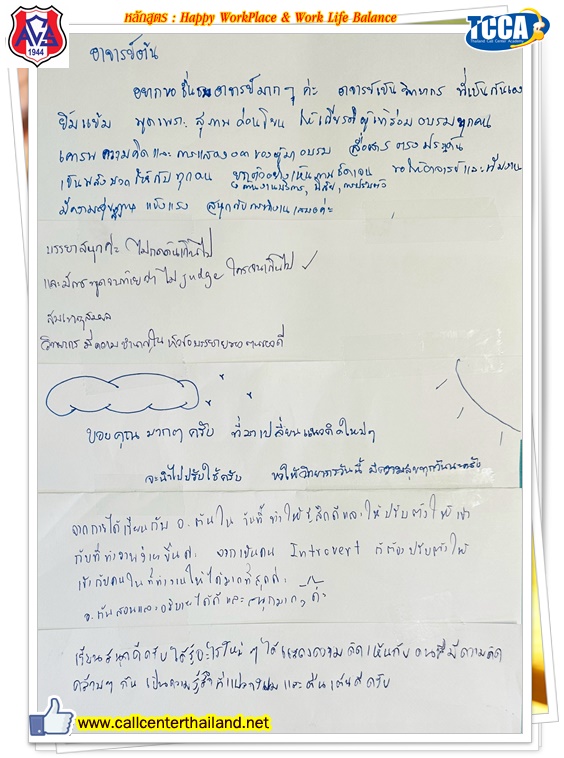 หลักสูตร : Happy WorkPlace & Work Life Balance
ACS
1944
TCCA
Thailand Call Center Academy
อาจารย์ต้น
อยากขอชื่นชมอาจารย์มากๆ ค่ะ อาจารย์เป็นวิทยากร ที่เป็นกันเอง
ยิ้มแย้ม พูดเพราะ สุภาพ อ่อนโยน ให้เกียรติผู้เข้าร่วมอบรมทุกคน
เคารพความคิดและการแสดงออกของผู้มาอบรม สื่อสารตรงประเด็น
เป็นพลังบวกให้กับทุกคน ยกตัวอย่างเห็นภาพชัดเจน ขอให้อาจารย์และทีมงาน
มีความสุข แข็งแรง สนุกกับการทำงานเสมอค่ะ
บรรยายสนุกค่ะ ไม่กดดันเกินไป
และมีการพูดจบท้ายว่า ไม่ judge ใครจนเกินไป ✓
สมเหตุสมผล
วิทยากรมีความชำนาญใน หัวข้อบรรยายของตนเองดี
ขอบคุณ มากๆ ครับ ที่มาเปลี่ยนแนวคิดใหม่ๆ
จะนำไปปรับใช้ครับ ขอให้วิทยากรวันนี้ มีความสุขทุกวันนะครับ
จากการได้เรียนกับ อ.ต้นใน วันนี้ ทำให้รู้สึกดีและให้ปรับตัวให้เข้า
กับที่ทำงานง่ายขึ้นค่ะ จากเป็นคน Introvert ก็ต้องปรับตัวให้
เข้ากับคนในที่ทำงานให้ได้มากที่สุดค่ะ
อ.ต้นสอนและอธิบายได้ดีและสนุกมากๆ ค่ะ
เรียนสนุกดีครับ ได้รู้อะไรใหม่ๆ ได้แสดงความคิดเห็นกับ คนที่มีความคิด
คล้ายๆ กัน เป็นความรู้สึกที่แปลกใหม่และตื่นเต้นดีครับ
www.callcenterthailand.net